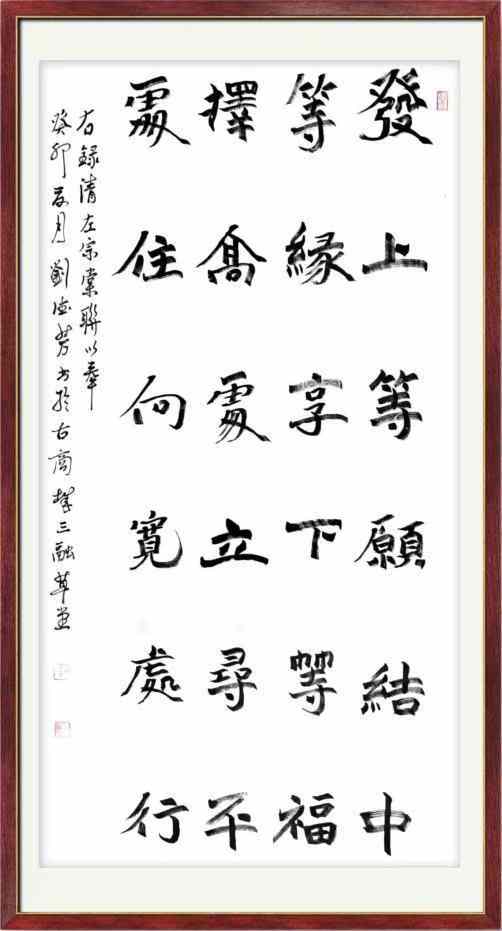 發上等願結中
等緣享下等福
擇高處立尋平
處住向寬處行
右録清左宗棠聯以奉
癸卯夏月劉德芳書於古商 三融草堂